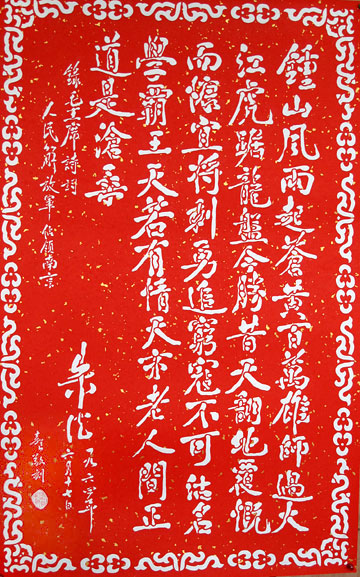 鍾山风雨起蒼黄百萬雄師過大
江虎踞龍盤今勝昔天翻地覆慨
而慷宜将剩勇追窮寇不可沽名
學霸王天若有情天亦老人間正
道是滄桑
錄毛主席詩詞
人民解放軍佔領南京
朱德 一九六年
六月十七日